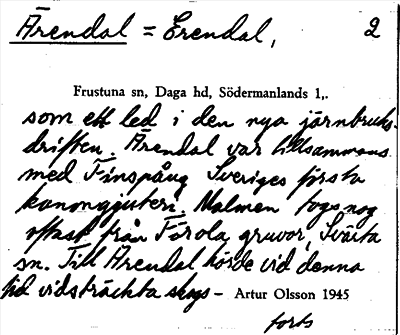 Ärendal = Erendal, 2
Frustuna sn, Daga hd, Södermanlands l,.
som ett led i den nya järnbruks-
driften. Ärendal var tillsammans
med Finspång Sveriges första
kanongjuteri. Malmen togs nog
oftast från Förola gruvor, Svärta
sn. Till Ärendal hörde vid denna
tid vidsträckta skogs- Artur Olsson 1945
forts